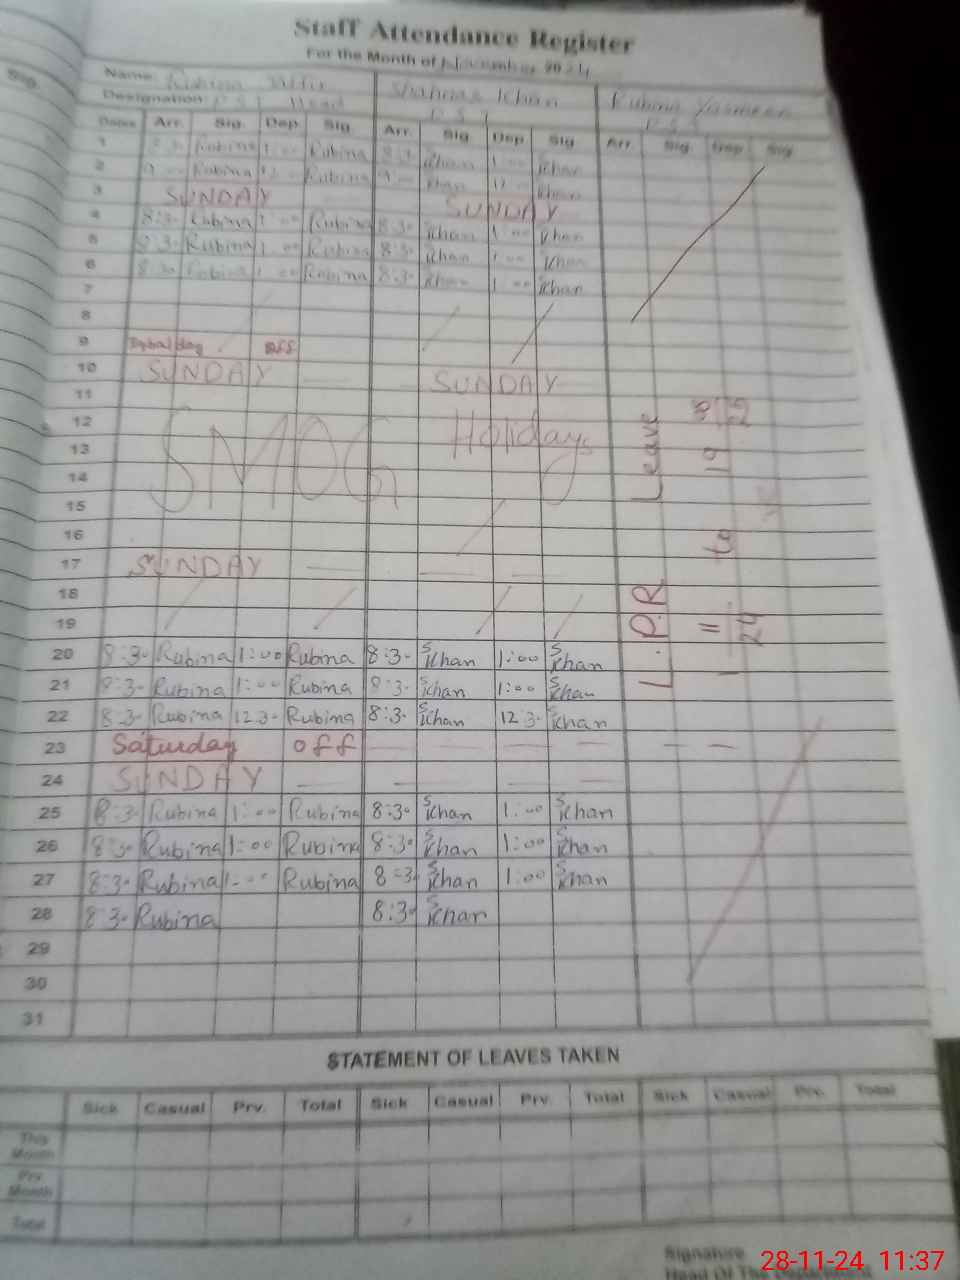 Staff Attendance Register
For the Month of November 2024
Sig.
Name: Rubina Shahnaz Khan Rubina Yasmeen
Designation: P.S.T Head P.S.T P.S.T
Dates Arr. Sig. Dep. Sig. Arr. Sig Dep Sig Arr. Sig. Dep Sig
1 8:30 Rubina 1:00 Rubina 8:30 SKhan 1:00 SKhan
2 9:00 Rubina 12 Rubina 9 Khan 12 Khan
3 SUNDAY SUNDAY
4 8:30 Rubina 1:00 Rubina 8:30 SKhan 1:00 Khan
5 8:30 Rubina 1:00 Rubina 8:30 SKhan 1:00 Khan
6 8:30 Rubina 1:00 Rubina 8:30 Khan 1:00 SKhan
7
8
9 Iqbal day off
10 SUNDAY SUNDAY
11
12 SMOG Holidays
13
14
15
16
17 SUNDAY
18
19
L.P.R Leave
to 19
11
24
20 8:30 Rubina 1:00 Rubina 8:30 SKhan 1:00 SKhan
21 8:30 Rubina 1:00 Rubina 8:30 SKhan 1:00 SKhan
22 8:30 Rubina 12:30 Rubina 8:30 SKhan 12:30 SKhan
23 Saturday off
24 SUNDAY
25 8:30 Rubina 1:00 Rubina 8:30 SKhan 1:00 SKhan
26 8:30 Rubina 1:00 Rubina 8:30 SKhan 1:00 SKhan
27 8:30 Rubina 1:00 Rubina 8:30 SKhan 1:00 SKhan
28 8:30 Rubina 8:30 SKhan
29
30
31
STATEMENT OF LEAVES TAKEN
Sick Casual Prv. Total Sick Casual Prv. Total Sick Casual Prv. Total
This Month
Prv Month
Total
Signature
Head Of The Department
28-11-24 11:37